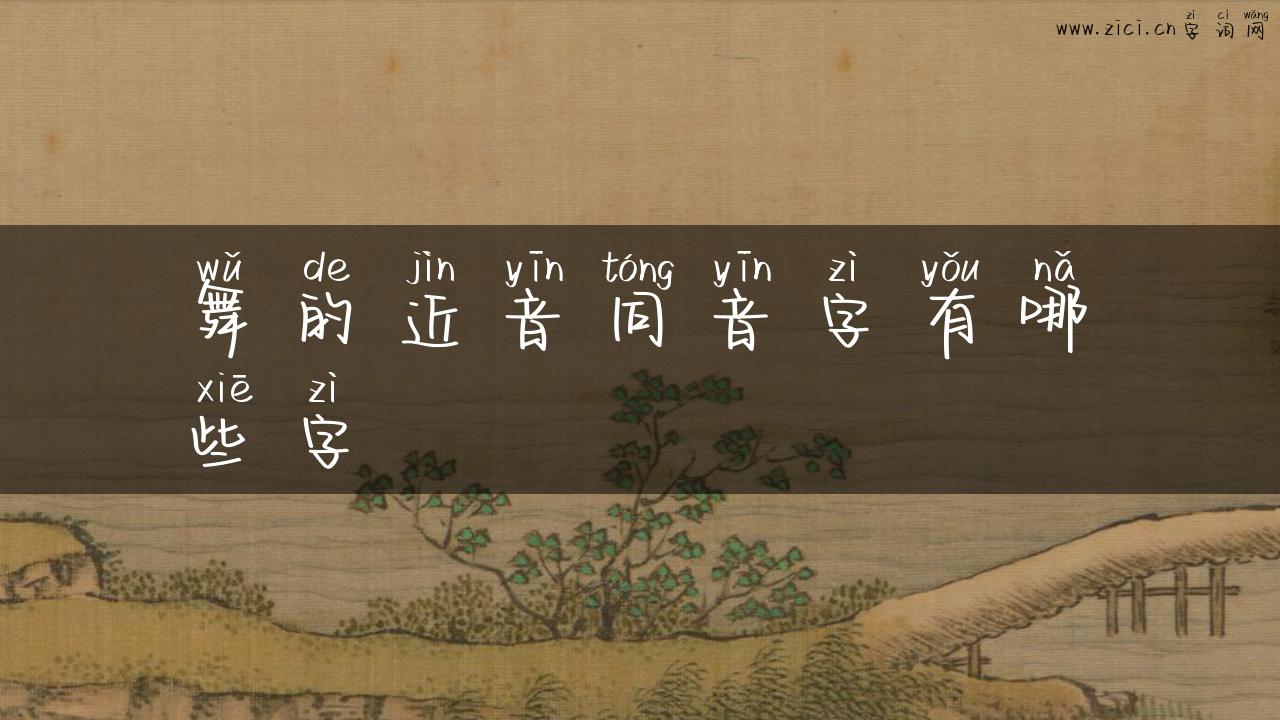 zì cí wǎng
www.zici.cn字词网
wǔ de jìn yīn tóng yīn zì yǒu nǎ
舞的近音同音字有哪
xiē zì
些字